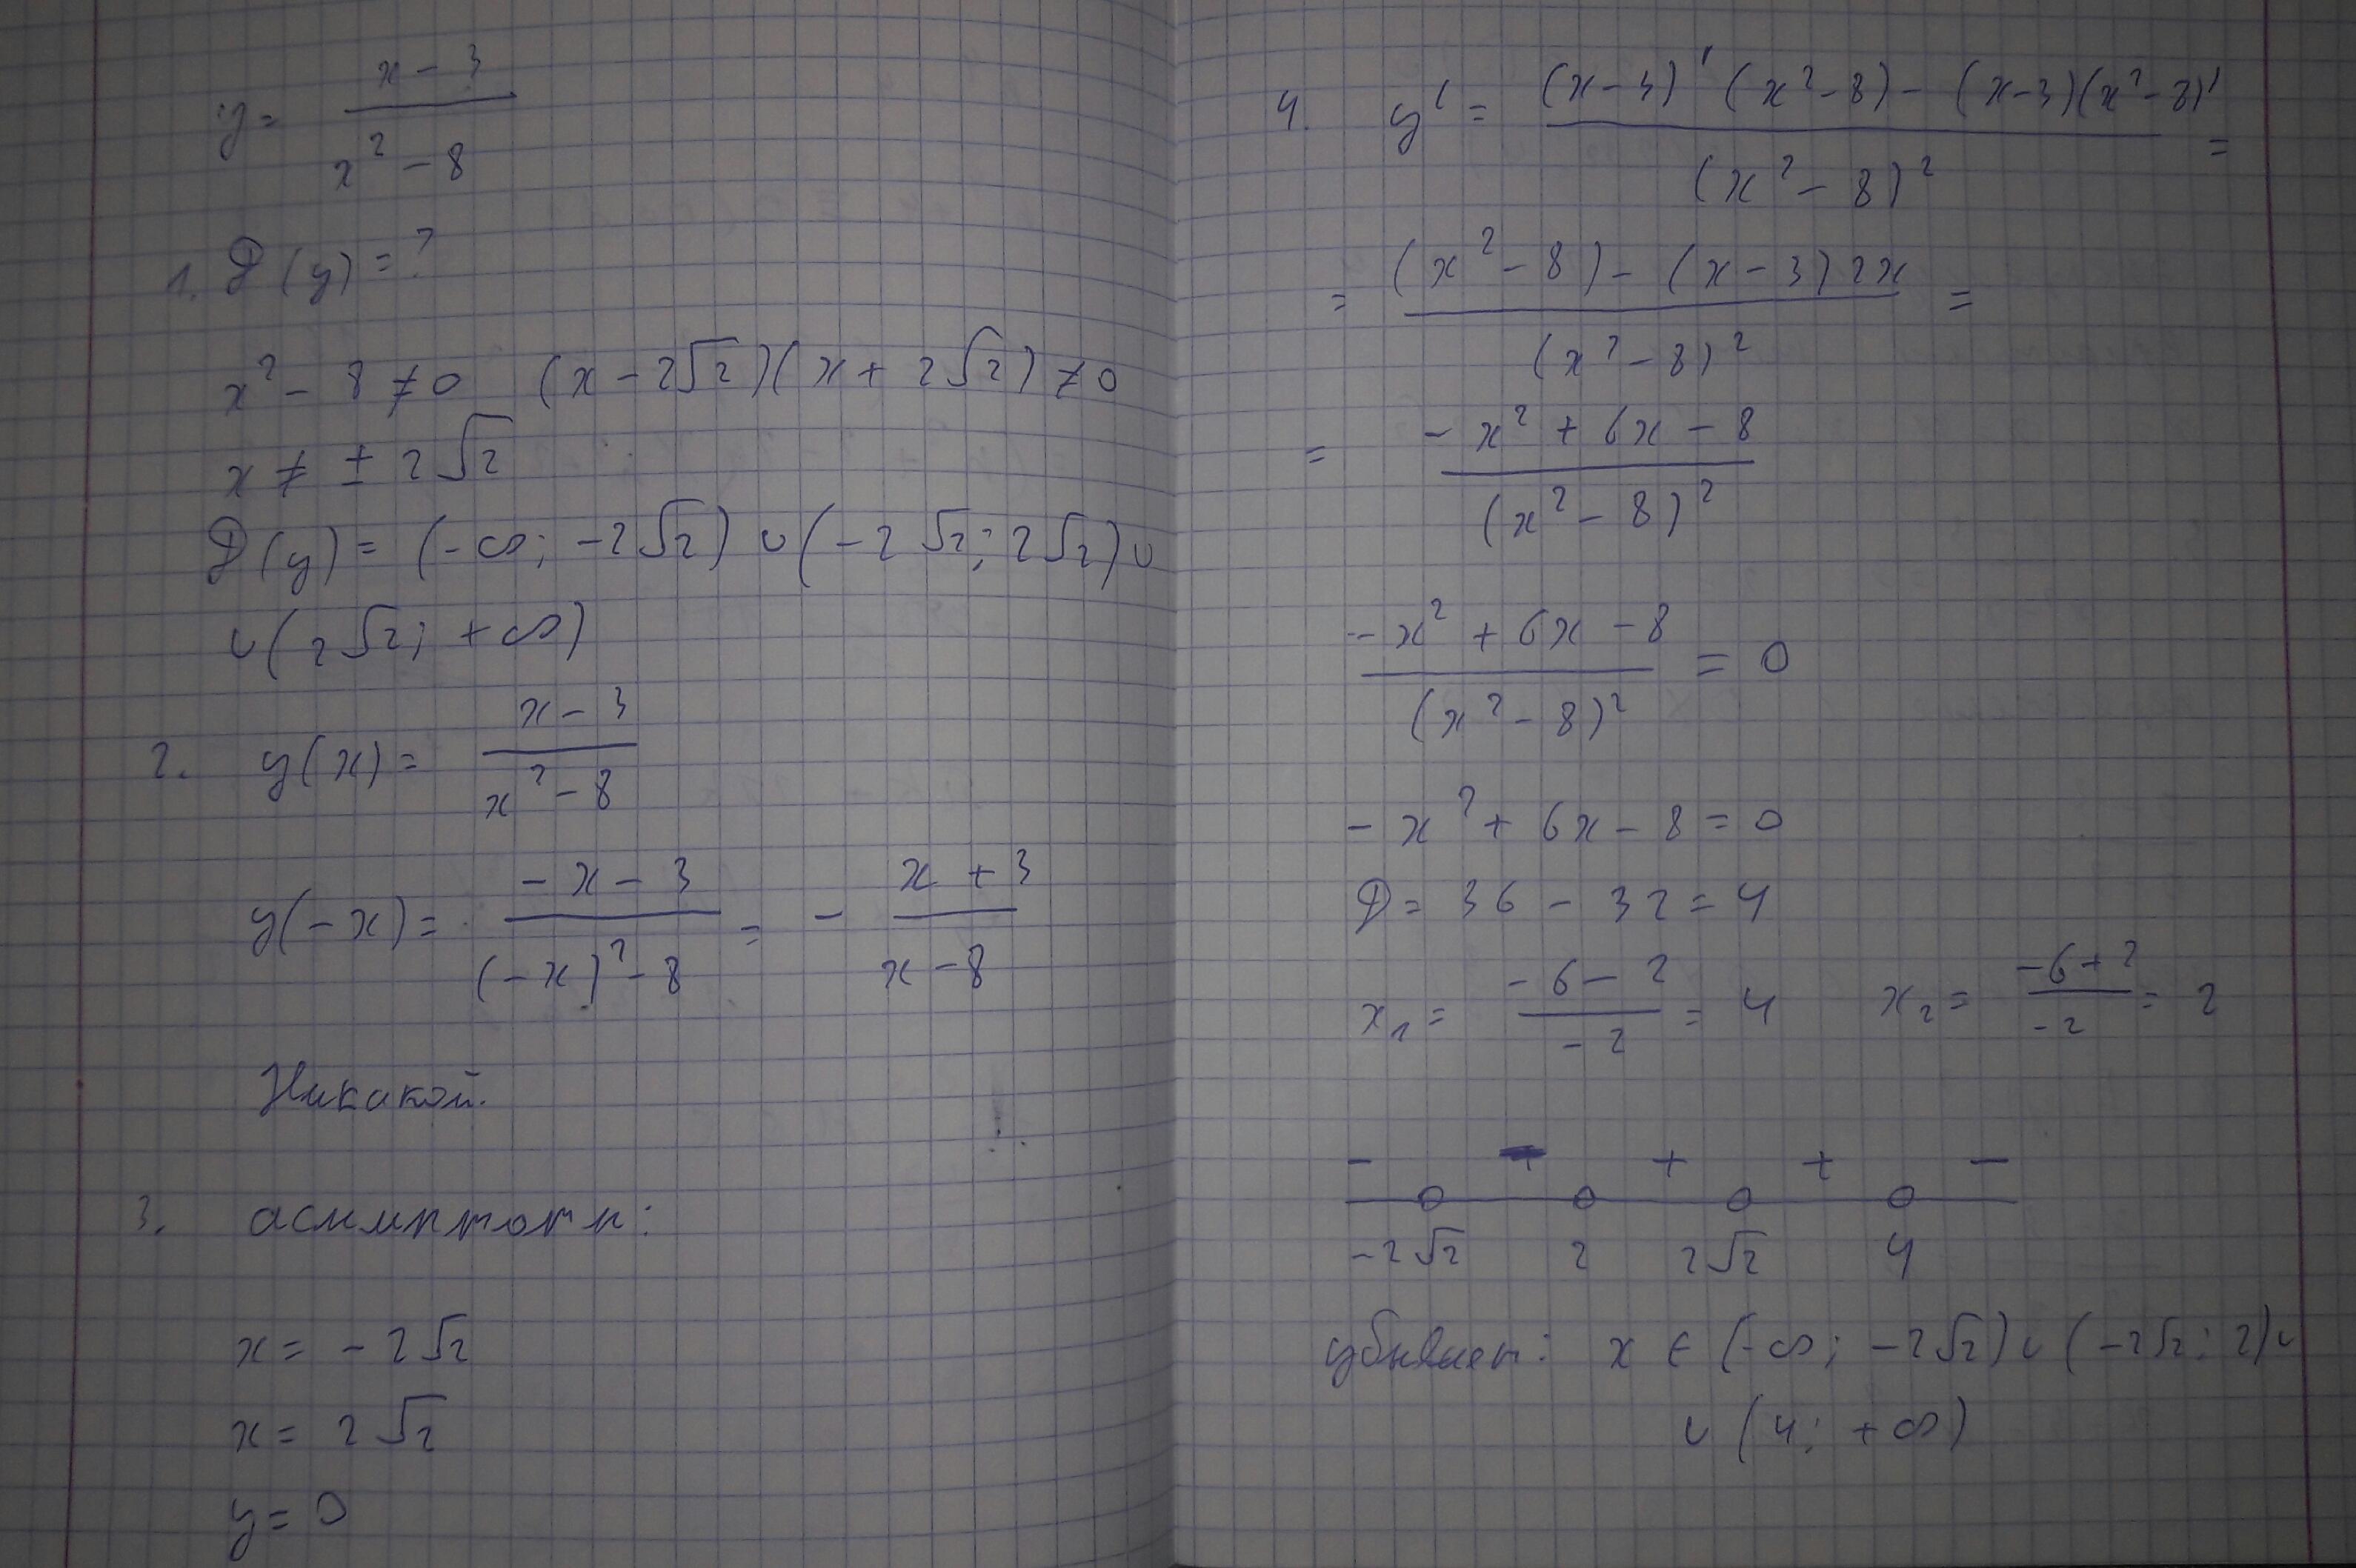 y = (x - 3) / (x² - 8)
1. D(y) = ?
x² - 8 ≠ 0 (x - 2√2)(x + 2√2) ≠ 0
x ≠ ± 2√2
D(y) = (-∞; -2√2) ∪ (-2√2; 2√2) ∪
∪ (2√2; +∞)
2. y(x) = (x - 3) / (x² - 8)
y(-x) = (-x - 3) / ((-x)² - 8) = - (x + 3) / (x - 8)
Никакой.
3. асимптоты:
x = -2√2
x = 2√2
y = 0
4. y' = ((x - 3)' (x² - 8) - (x - 3)(x² - 8)') / (x² - 8)² =
= ((x² - 8) - (x - 3) 2x) / (x² - 8)² =
= (-x² + 6x - 8) / (x² - 8)²
(-x² + 6x - 8) / (x² - 8)² = 0
-x² + 6x - 8 = 0
D = 36 - 32 = 4
x₁ = (-6 - 2) / -2 = 4 x₂ = (-6 + 2) / -2 = 2
- - + + -
-2√2 2 2√2 4
убывает: x ∈ (-∞; -2√2) ∪ (-2√2; 2) ∪
∪ (4; +∞)